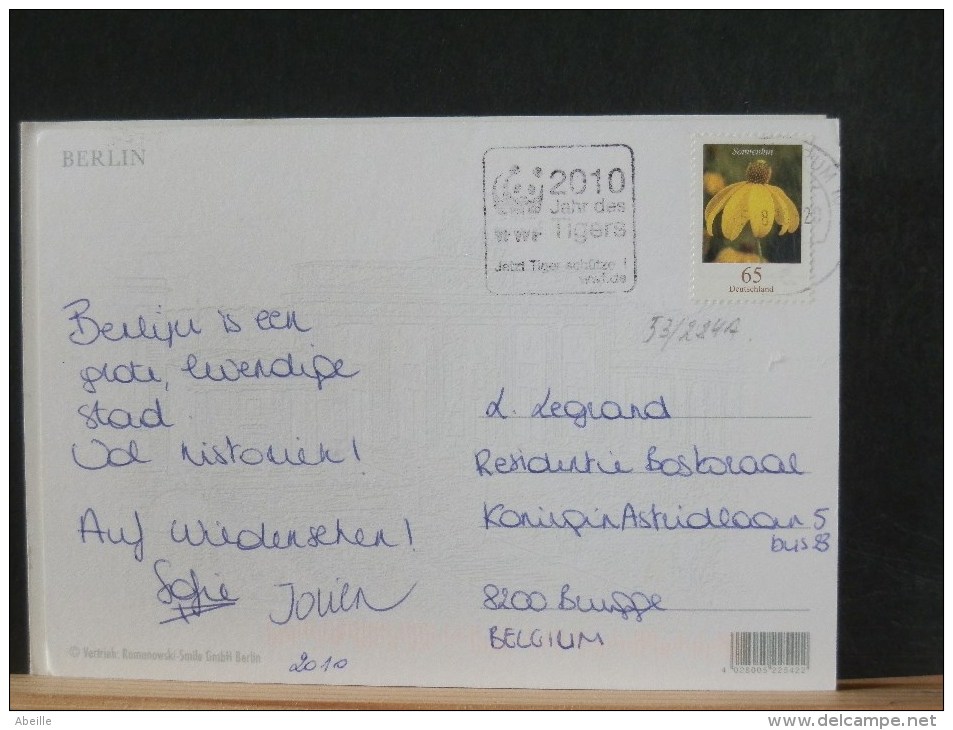 BERLIN
2010
Jahr des
WWF Tigers
Jetzt Tiger schützen!
wwf.de
Sonnenhut
8
65
Deutschland
53/224A
Berlijn is een
grote, levendige
stad.
Vol historiek!
Auf Wiedersehen!
Sofie
2010
L. Legrand
Residentie Boskoraal
Koningin Astridlaan 5
bus 8
8200 Brugge
BELGIUM
© Vertrieb: Ramanowski-Smile GmbH Berlin
4 026005 225422
Abeille
delcampe.net